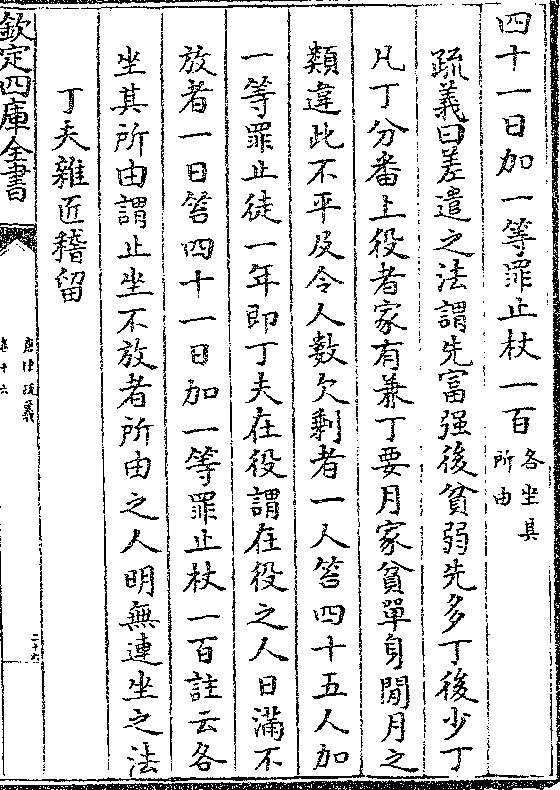 四十一日加一等罪止杖一百各坐其所由
疏義曰差遣之法謂先富强後貧弱先多丁後少丁
凡丁分番上役者家有兼丁要月家貧單身閒月之
類違此不平及令人數欠剩者一人笞四十五人加
一等罪止徒一年即丁夫在役謂在役之人日滿不
放者一日笞四十一日加一等罪止杖一百註云各
坐其所由謂止坐不放者所由之人明無連坐之法
丁夫雜匠稽留
欽定四庫全書
唐律疏義
卷十六